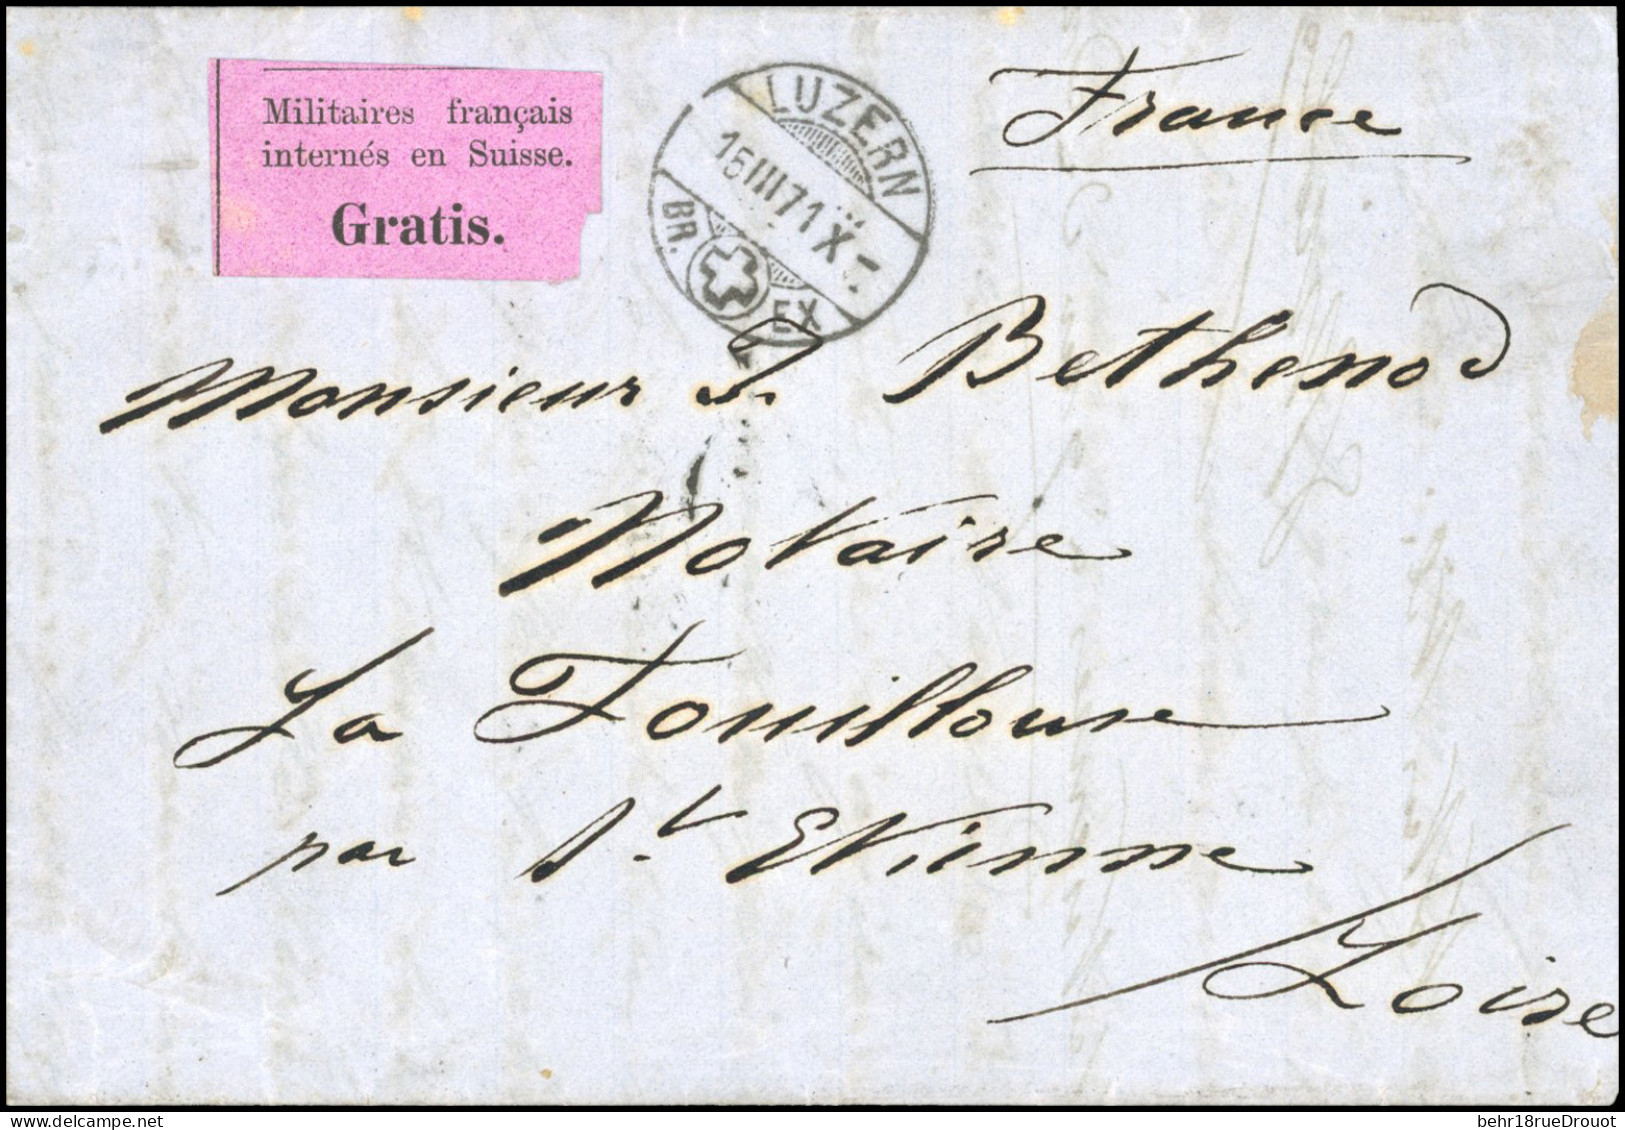 Militaires français
internés en Suisse.
Gratis.
LUZERN
15 III 71 X
BR. EX
France
Monsieur J. Bethenod
Notaire
La Fouillouse
par St. Etienne
Loire
behr18rueDrouot